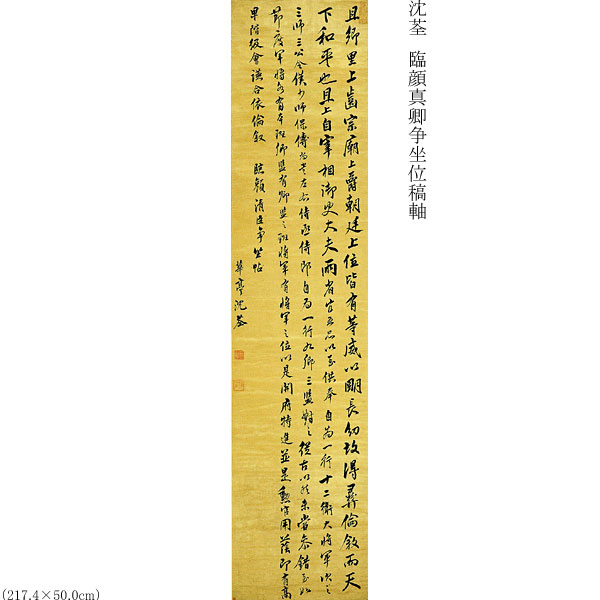 沈荃 臨顔真卿争坐位稿軸
且鄉里上齒宗廟上爵朝廷上位皆有等威以明長幼故得彝倫敘而天
下和平也且上自宰相御史大夫兩省官五品以上供奉自為一行十二衛大將軍次之
三師三公令僕少師保傅尚書左右丞侍郎自為一行九卿三監對之從古以然未嘗參錯至如
節度軍將各有本班卿監有卿監之班將軍有將軍之位以是開府特進並是勲官用蔭即有高
卑階級會讌合依倫敘 臨顏清臣爭坐帖
華亭沈荃
(217.4×50.0cm)